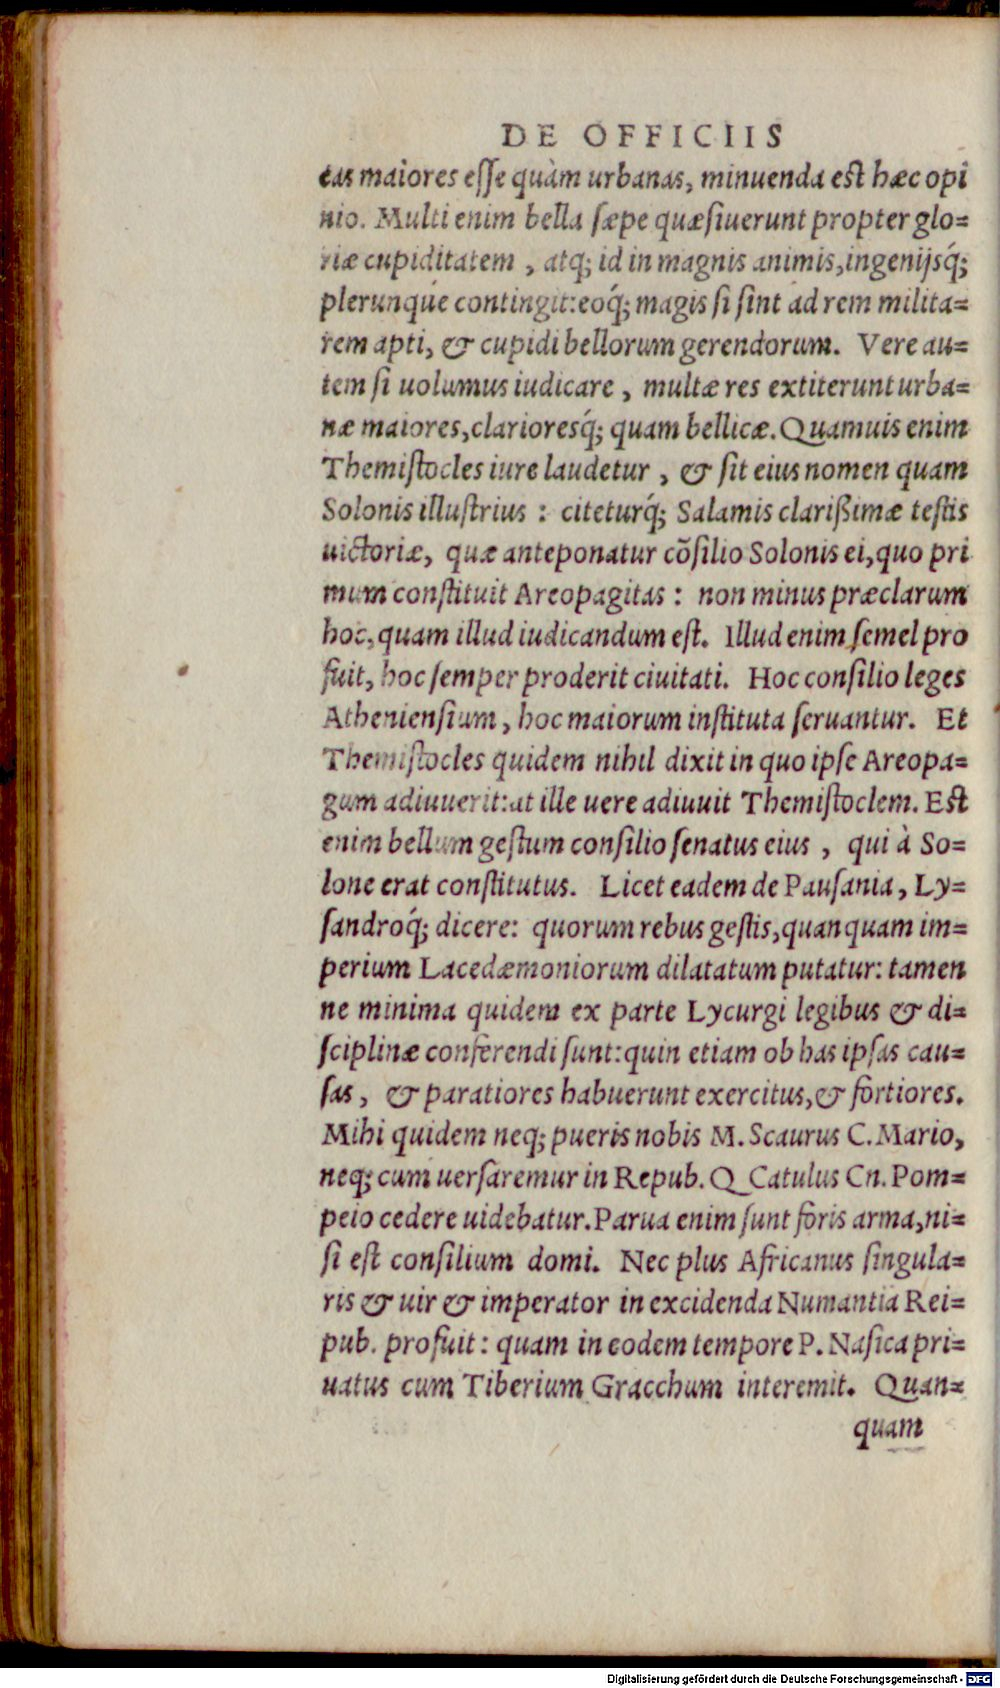 DE OFFICIIS
cas maiores esse quàm urbanas, minuenda est hæc opi
nio. Multi enim bella sæpe quæsiuerunt propter glo=
riæ cupiditatem , atq; id in magnis animis,ingenijsq́;
plerunque contingit:eoq́; magis si sint ad rem milita=
rem apti, & cupidi bellorum gerendorum. Vere au=
tem si uolumus iudicare , multæ res extiterunt urba=
næ maiores,clarioresq́; quam bellicæ. Quamuis enim
Themistocles iure laudetur , & sit eius nomen quam
Solonis illustrius : citeturq́; Salamis clarißimæ testis
uictoriæ, quæ anteponatur cõsilio Solonis ei,quo pri
mum constituit Areopagitas : non minus præclarum
hoc, quam illud iudicandum est. Illud enim semel pro
fuit, hoc semper proderit ciuitati. Hoc consilio leges
Atheniensium , hoc maiorum instituta seruantur. Et
Themistocles quidem nihil dixit in quo ipse Areopa=
gum adiuuerit:at ille uere adiuuit Themistoclem. Est
enim bellum gestum consilio senatus eius , qui à So=
lone erat constitutus. Licet eadem de Pausania, Ly=
sandroq́; dicere: quorum rebus gestis,quanquam im=
perium Lacedæmoniorum dilatatum putatur: tamen
ne minima quidem ex parte Lycurgi legibus & di=
sciplinæ conferendi sunt:quin etiam ob has ipsas cau=
sas , & paratiores habuerunt exercitus,& fortiores.
Mihi quidem neq; pueris nobis M. Scaurus C. Mario,
neq; cum uersaremur in Repub. Q Catulus Cn. Pom=
peio cedere uidebatur.Parua enim sunt foris arma,ni=
si est consilium domi. Nec plus Africanus singula=
ris & uir & imperator in excidenda Numantia Rei=
pub. profuit : quam in eodem tempore P. Nasica pri=
uatus cum Tiberium Gracchum interemit. Quan=
quam
Digitalisierung gefördert durch die Deutsche Forschungsgemeinschaft - DFG